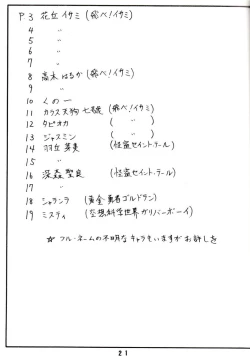 P.3 花丘イサミ (飛べ!イサミ)
4 〃
5 〃
6 〃
7 〃
8 高木はるか (飛べ!イサミ)
9 〃
10 くのー
11 カラス天狗七龍 (飛べ!イサミ)
12 タピオカ ( 〃 )
13 ジャスミン ( 〃 )
14 羽丘芽美 (怪盗セイント・テール)
15 〃
16 深森聖良 (怪盗セイント・テール)
18 シャランラ (黄金勇者ゴルドラン)
19 ミスティ (空想科学世界ガリバーボーイ)
☆ フル・ネームの不明なキャラもいますがお許しを
21